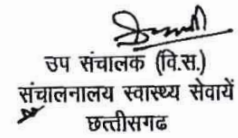 उप संचालक (वि.स.)
संचालनालय स्वास्थ्य सेवायें
छत्तीसगढ